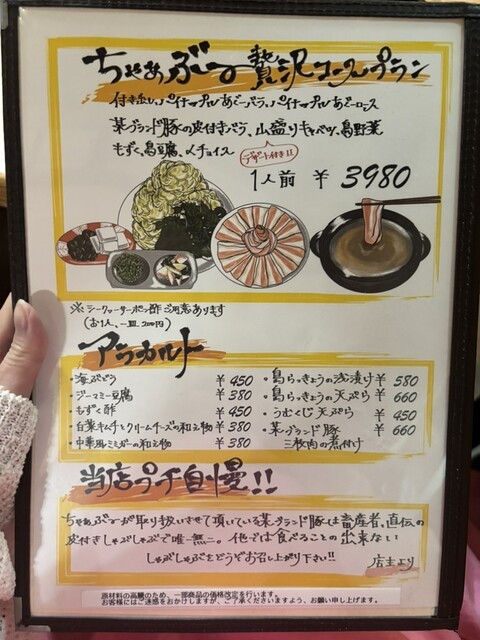 ちゃあぶー贅沢コースプラン
付き出し、パイナップルあぐーバラ、パイナップルあぐーロース
某ブランド豚の皮付きバラ、山盛りキャベツ、島野菜
もずく、島豆腐、〆チョイス
デザート付き!!
1人前 ¥3980
※シークヮーサーポン酢ご用意あります
(お1人、一皿200円)
アラカルト
・海ぶどう ¥450
・ジーマミー豆腐 ¥380
・もずく酢 ¥450
・白菜キムチとクリームチーズの和え物 ¥380
・中華風ミミガーの和え物 ¥380
・島らっきょうの浅漬け ¥580
・島らっきょうの天ぷら ¥660
・うむくじ天ぷら ¥450
・某ブランド豚 ¥660
三枚肉の煮付け
当店プチ自慢!!
ちゃあぶーが取り扱いさせて頂いている某ブランド豚は畜産者、直伝の
皮付きしゃぶしゃぶで唯一無一。他では食べることの出来ない
しゃぶしゃぶをどうぞお召し上がり下さい!!
店主より
原材料の高騰のため、一部商品の価格改定を行います。
お客様にはご迷惑をおかけしますが、ご了承くださいますよう、お願い申し上げます。